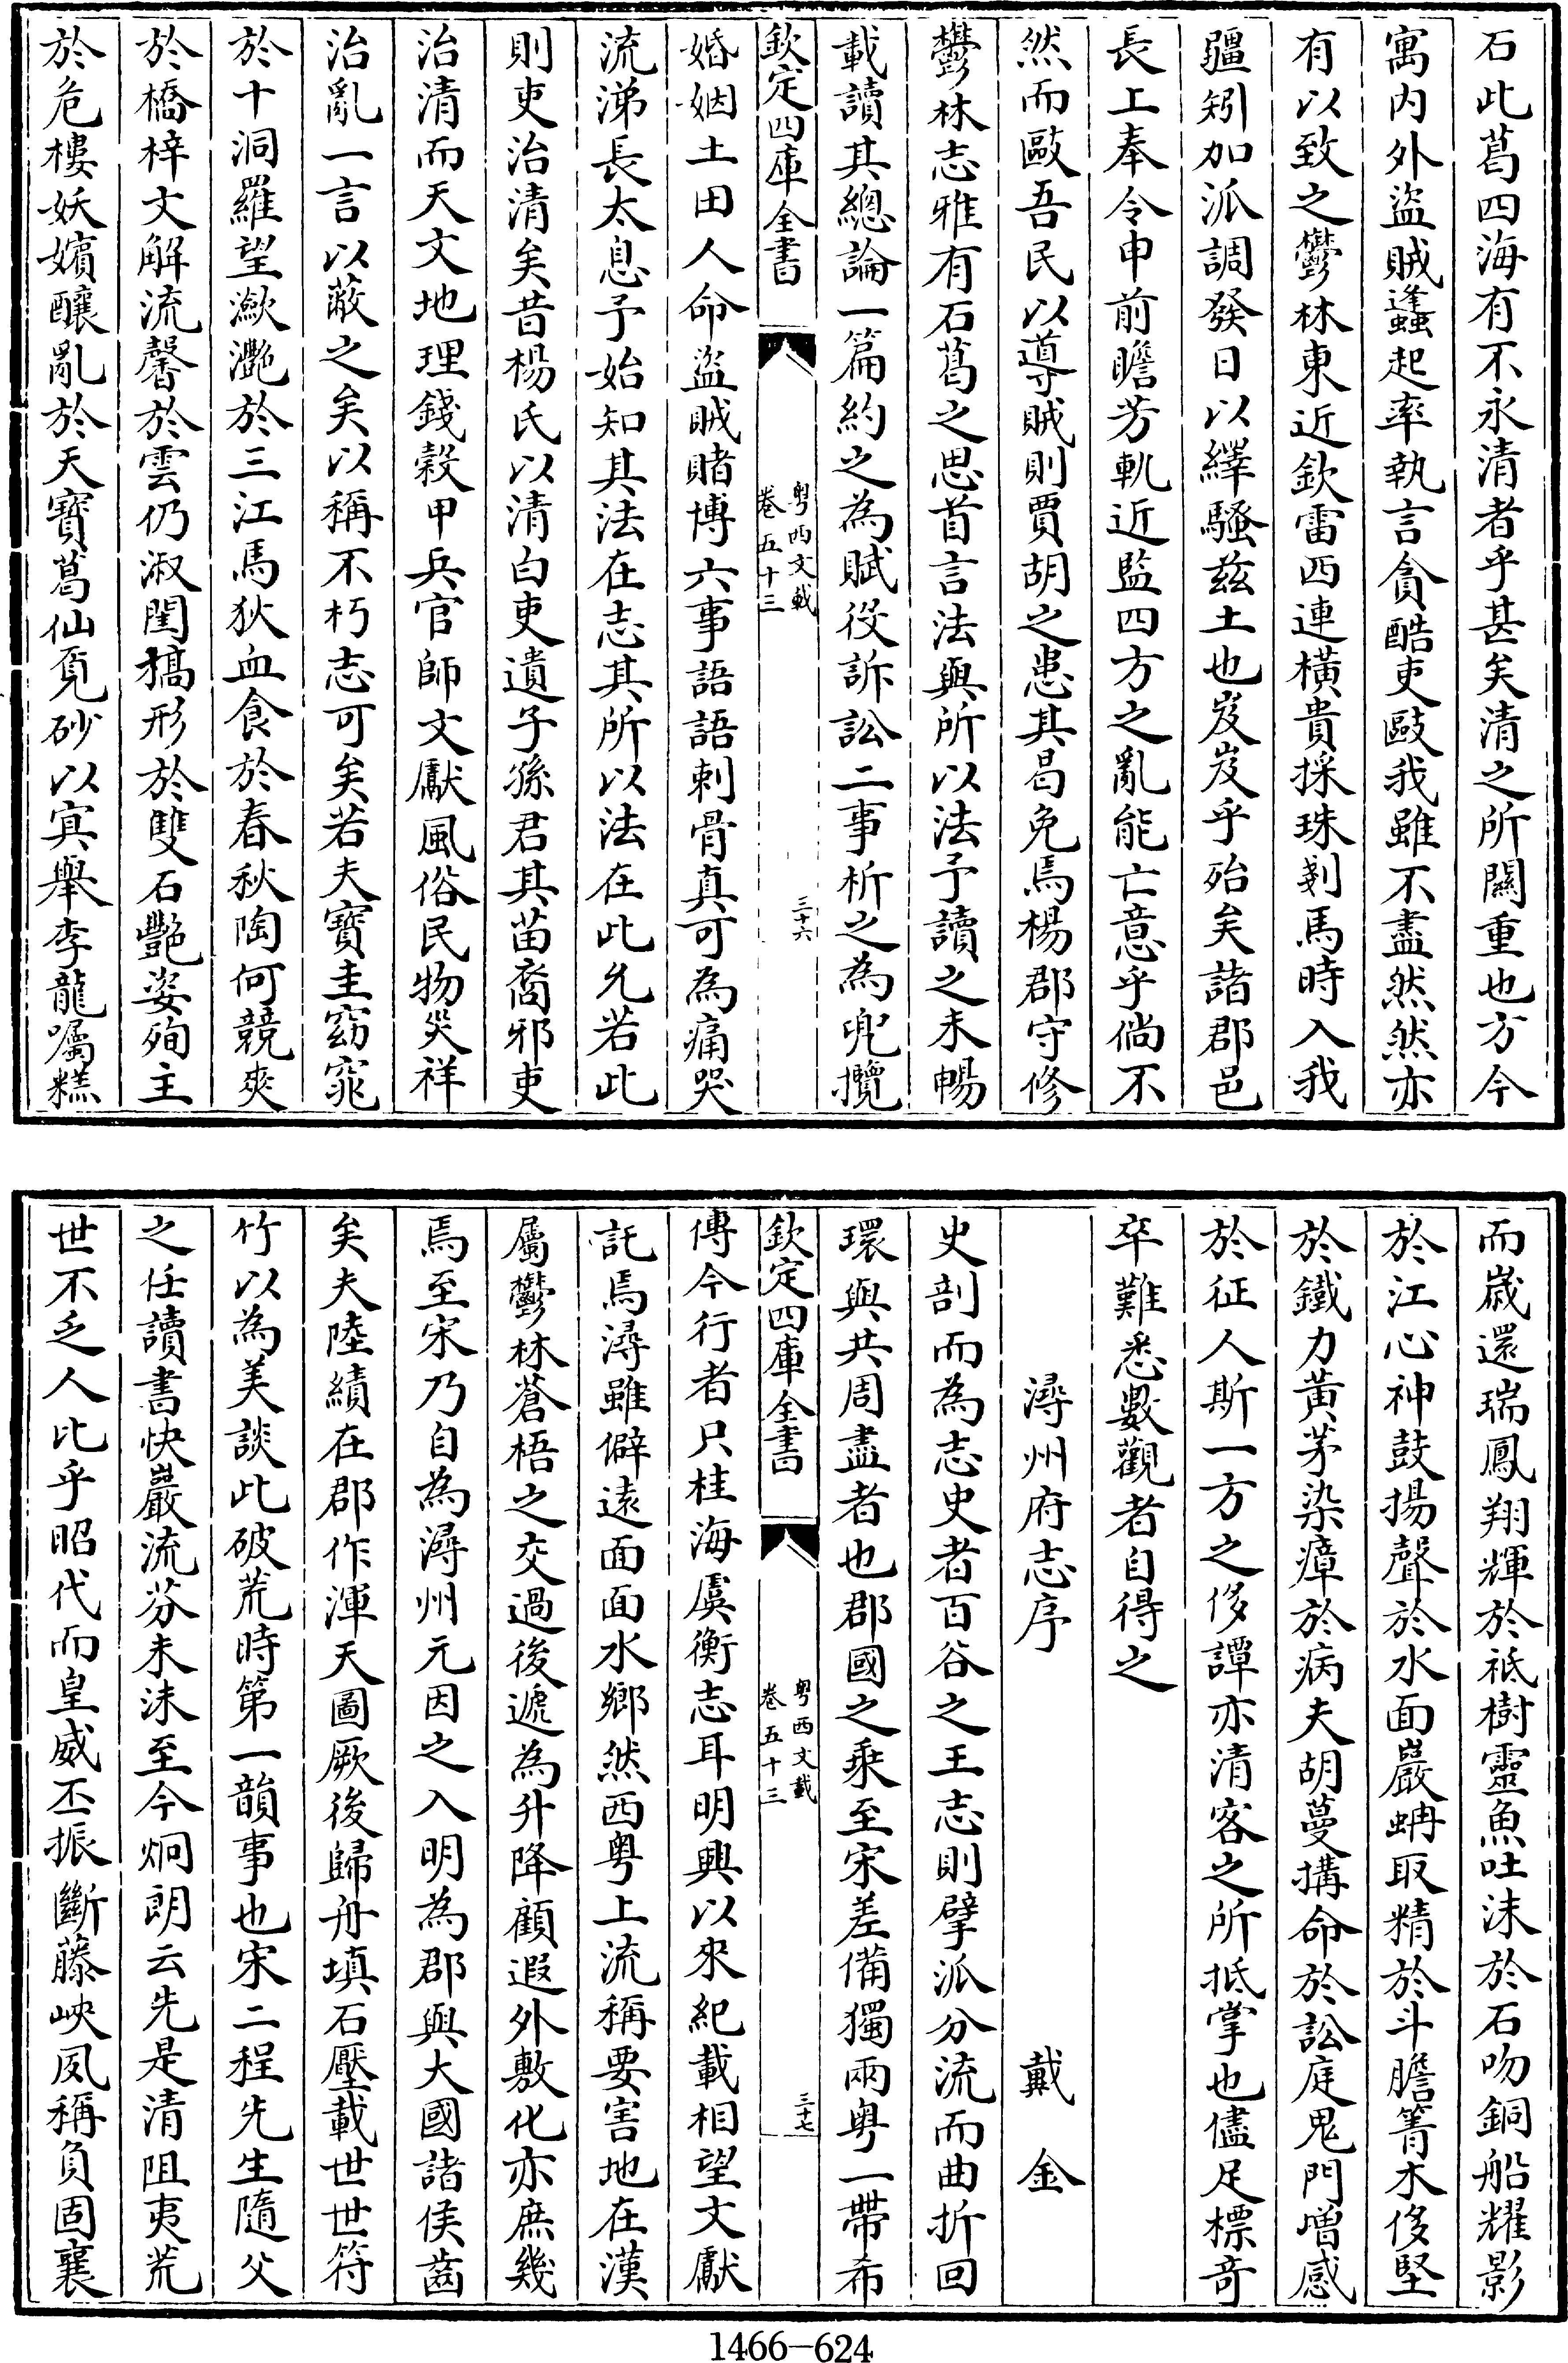 石此葛四海有不永清者乎甚矣清之所關重也方今
寓内外盜賊蠭起率執言貪酷吏敺我雖不盡然然亦
有以致之鬱林東近欽雷西連橫貴採珠剗馬時入我
疆矧加派調發日以繹騷兹土也岌岌乎殆矣諸郡邑
長上奉令申前瞻芳軌近監四方之亂能亡意乎倘不
然而敺吾民以導賊則賈胡之患其曷免焉楊郡守修
鬱林志雅有石葛之思首言法與所以法予讀之未暢
載讀其總論一篇約之為賦役訴訟二事析之為兜攬
欽定四庫全書
粤西文載
卷五十三
三十六
婚姻土田人命盜賊賭博六事語語刺骨真可為痛哭
流涕長太息予始知其法在志其所以法在此允若此
則吏治清矣昔楊氏以清白吏遺子孫君其苗裔邪吏
治清而天文地理錢榖甲兵官師文獻風俗民物災祥
治亂一言以蔽之矣以稱不朽志可矣若夫寶圭窈窕
於十洞羅望瀲灔於三江馬狄血食於春秋陶何競爽
於橋梓文解流馨於雲仍淑閨槁形於雙石艷姿殉主
於危樓妖嬪釀亂於天寶葛仙覓砂以寘舉李龍囑糕
而歲還瑞鳳翔輝於祗樹靈魚吐沫於石吻銅船耀影
於江心神鼓揚聲於水面巖蚺取精於斗膽箐木侈堅
於鐵力黃茅染瘴於病夫胡蔓搆命於訟庭鬼門增感
於征人斯一方之侈譚亦清客之所抵掌也儘足標奇
卒難悉數觀者自得之
潯州府志序　戴金
史剖而為志史者百谷之王志則擘派分流而曲折回
環與共周盡者也郡國之乘至宋差備獨兩粤一帶希
欽定四庫全書
粤西文載
卷五十三
三十七
傳今行者只桂海虞衡志耳明興以來紀載相望文獻
託焉潯雖僻逺面面水鄉然西粤上流稱要害地在漢
屬鬱林蒼梧之交過後遞為升降顧遐外敷化亦庶幾
焉至宋乃自為潯州元因之入明為郡與大國諸侯齒
矣夫陸績在郡作渾天圖厥後歸舟填石壓載世世符
竹以為美談此破荒時第一韻事也宋二程先生隨父
之任讀書快巖流芬未沬至今炯朗云先是清阻夷荒
世不乏人比乎昭代而皇威丕振斷藤峽夙稱負固襄
1466-624